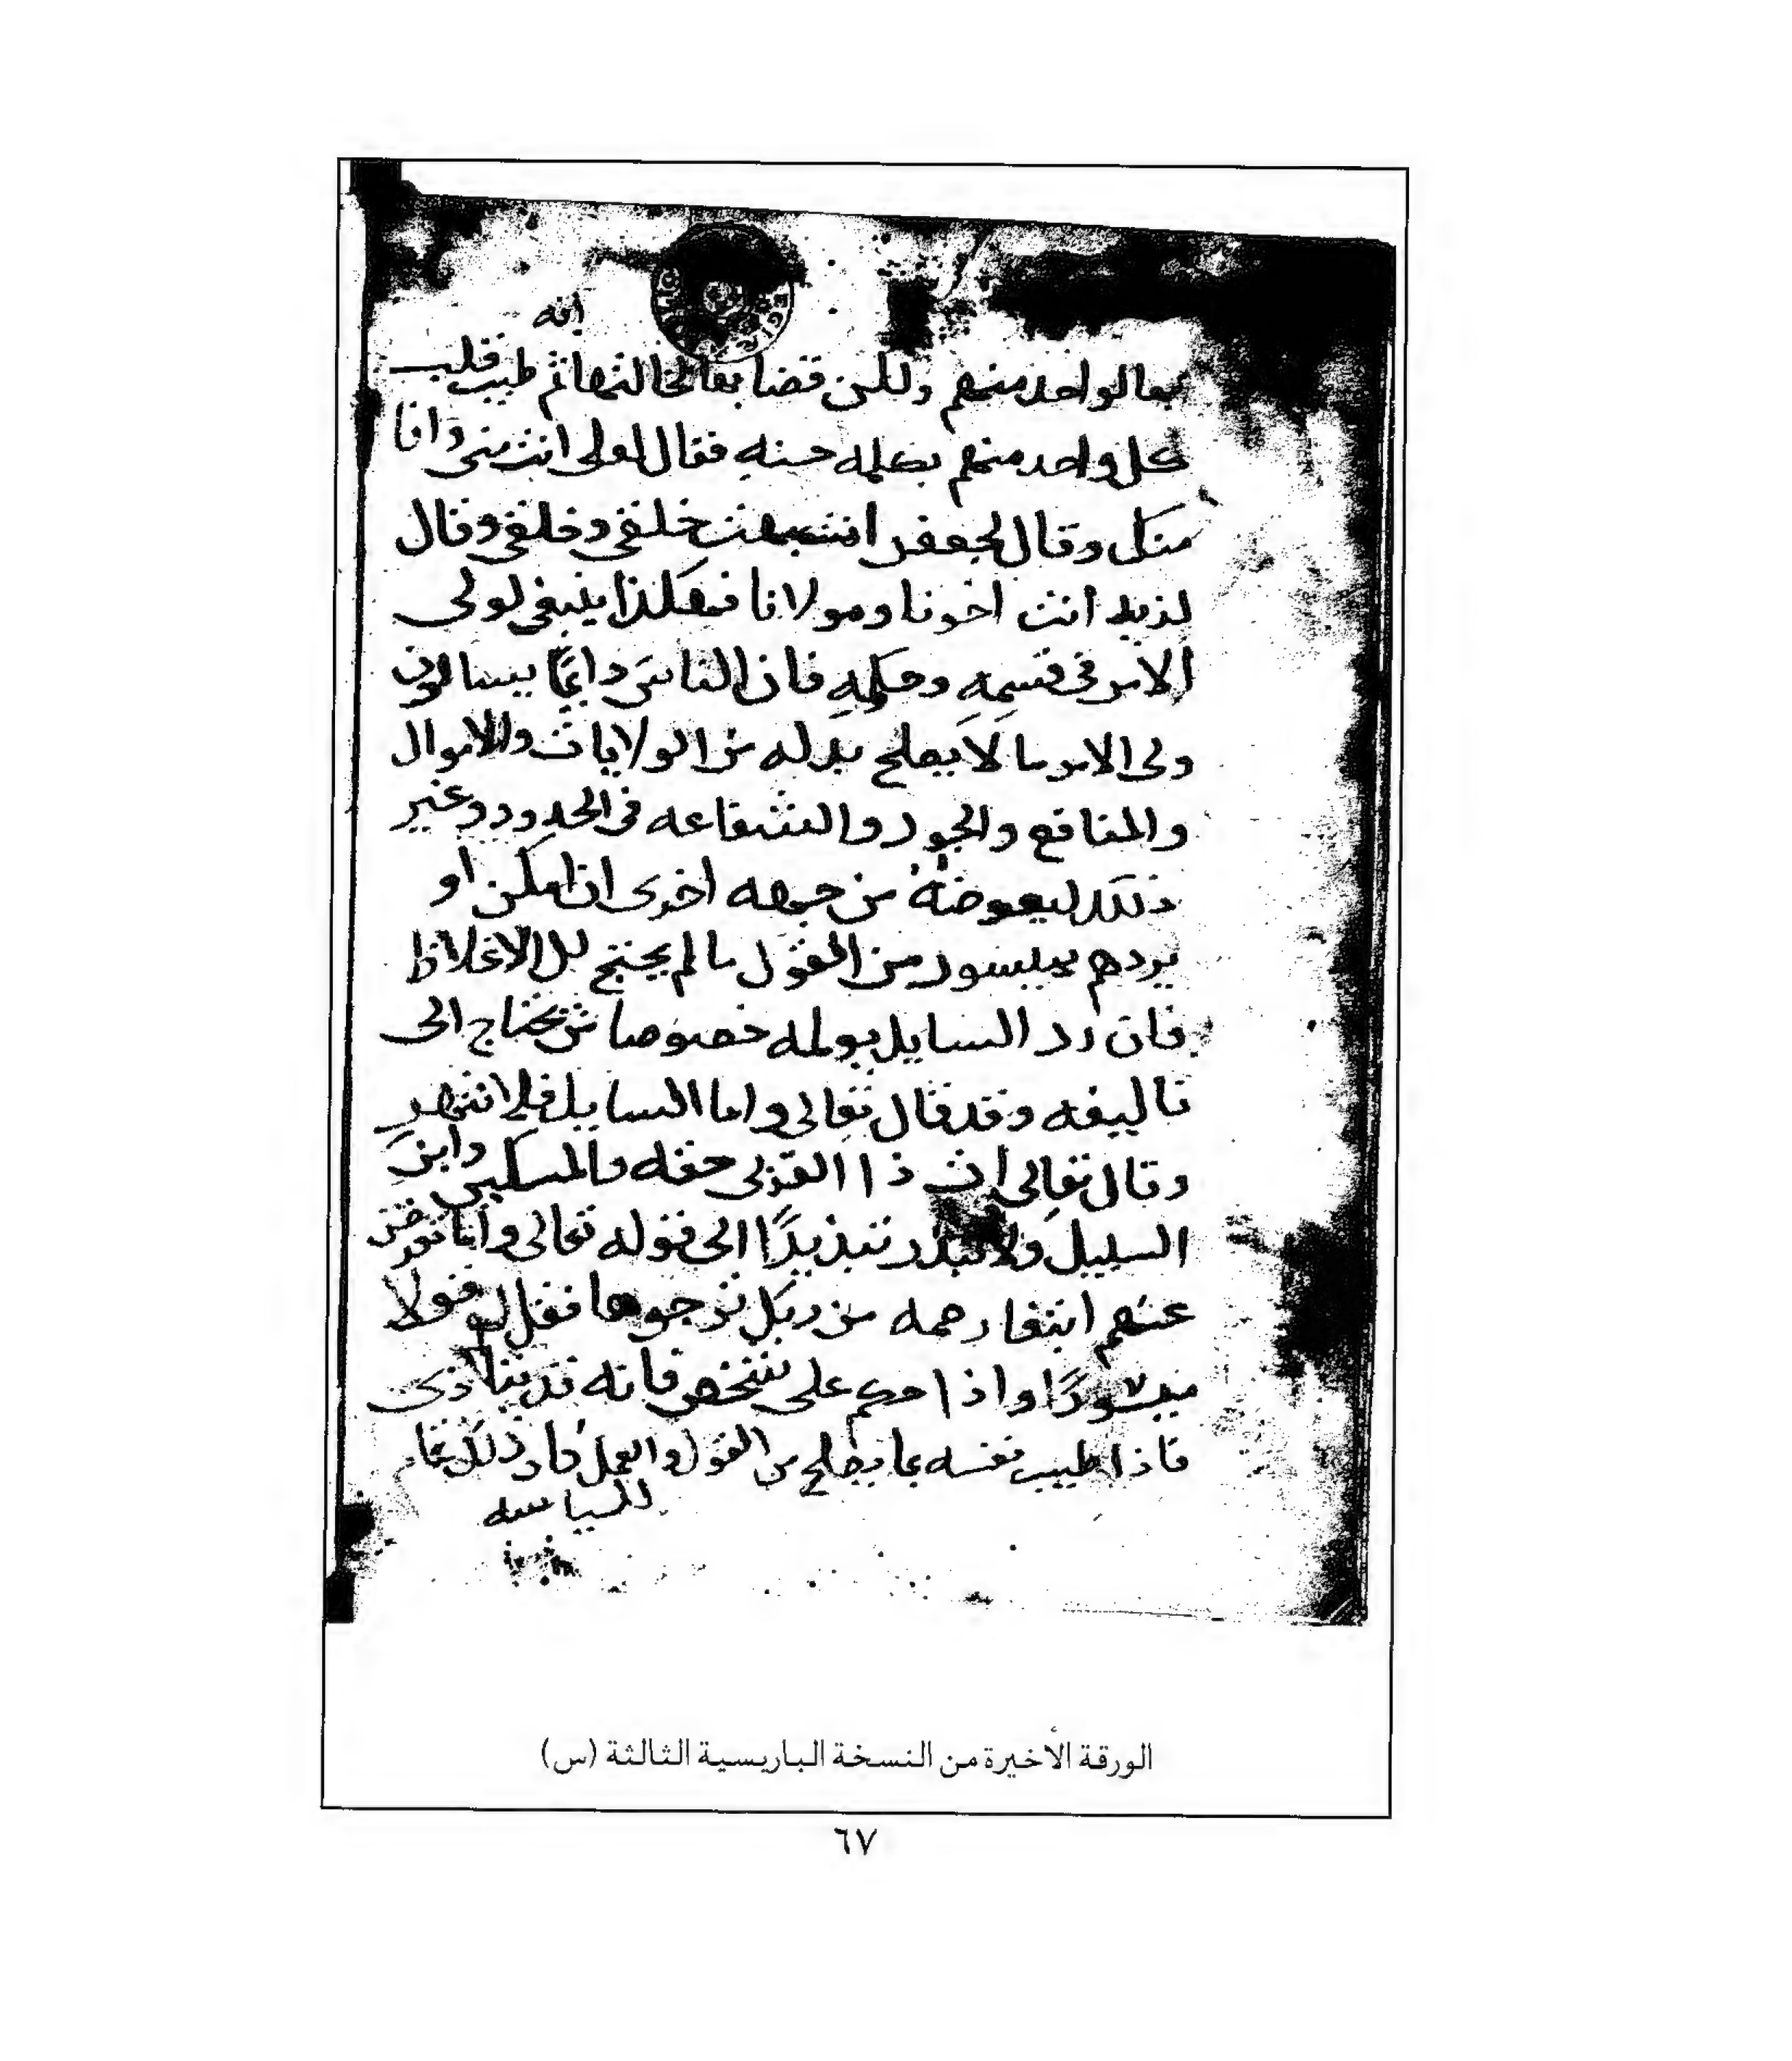 انه
بها لواحد منهم ولكن قضا بها لخالتها ثم طيب قلب
كل واحد منهم بكلمه حسنه فقال لعلى انت منى وانا
منك وقال لجعفر اشبهت خلقى وخلقى وقال
لزيد أنت اخونا ومولانا فهكذا ينبغى لولى
الامر فى قسمه وحكمه فان الناس دايما يسالون
ولى الامر ما لا يصلح بدله من الولايات والاموال
والمنافع والجور والشفاعه فى الحدود وغير
ذلك ليعوضه من جهه اخرى ان امكن او
يردهم بميسور من القول ما لم يحتج الى الاغلاظ
فان رد السايل يولمه خصوصا من يحتاج الى
تاليفه وقد قال تعالى واما السايل فلا تنهر
وقال تعالى وات ذا القربى حقه والمسكين وابن
السبيل ولا تبذر تبذيرًا الى قوله تعالى واما تعرضن
عنهم ابتغا رحمه من ربك ترجوها فقل لهم قولا
ميسورًا واذا حكم على شخص فانه قد يتاذى
فاذا طيب نفسه بما يصلح من القول والعمل كان ذلك تما
للسياسه
الورقة الأخيرة من النسخة الباريسية الثالثة (س)
٦٧